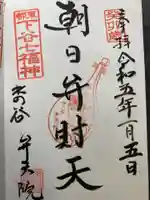 奉拝 令和五年一月五日
朝日弁財天
下谷七福神
水の谷 弁天院